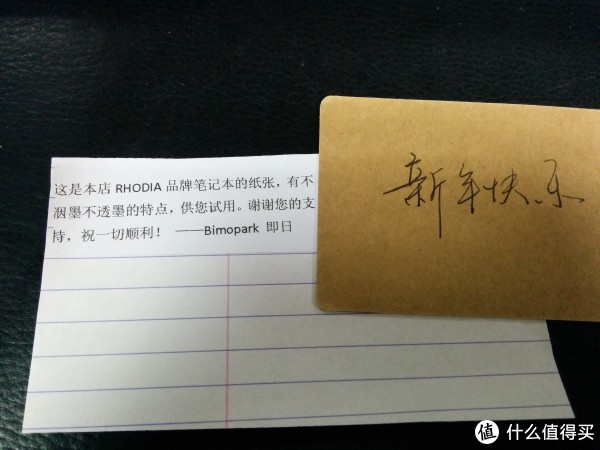 这是本店 RHODIA 品牌笔记本的纸张，有不
洇墨不透墨的特点，供您试用。谢谢您的支
持，祝一切顺利！ ——Bimopark 即日
新年快乐
值 什么值得买